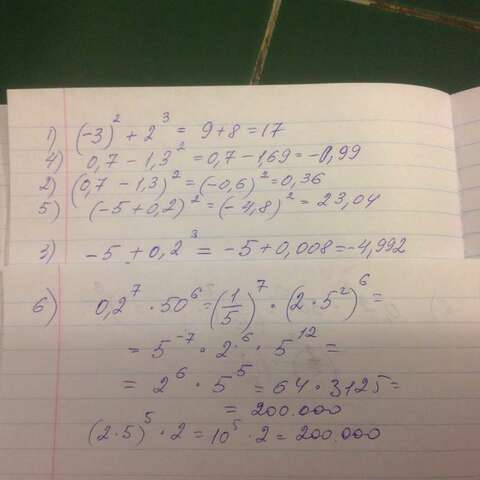 1) (-3)² + 2³ = 9+8 = 17
4) 0,7 - 1,3² = 0,7 - 1,69 = -0,99
2) (0,7 - 1,3)² = (-0,6)² = 0,36
5) (-5 + 0,2)² = (-4,8)² = 23,04
3) -5 + 0,2³ = -5 + 0,008 = -4,992
6) 0,2⁷ · 50⁶ = (1/5)⁷ · (2 · 5²)⁶ =
= 5⁻⁷ · 2⁶ · 5¹² =
= 2⁶ · 5⁵ = 64 · 3125 =
= 200.000
(2·5)⁵ · 2 = 10⁵ · 2 = 200.000